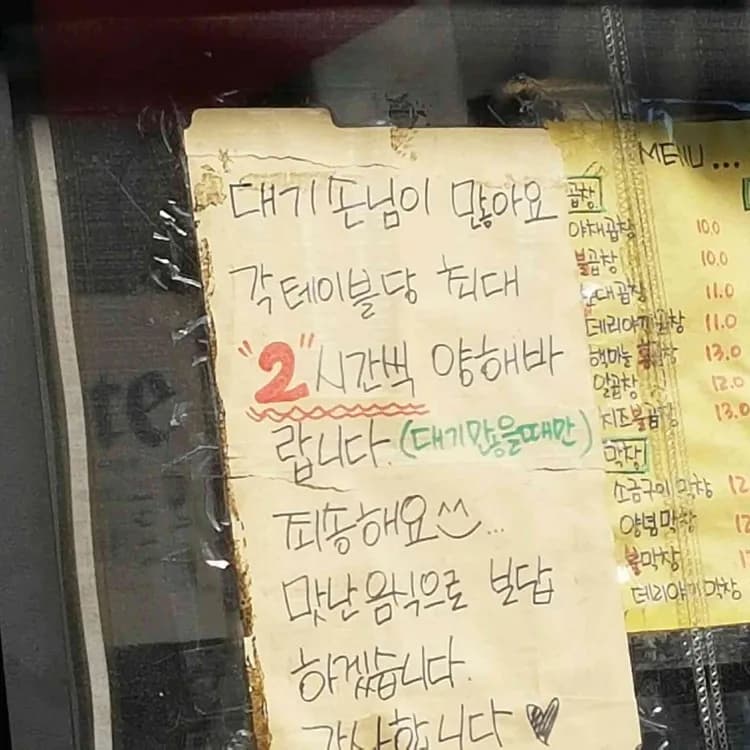 대기손님이 많아요
각테이블당 최대
"2"시간씩 양해바
랍니다. (대기많을때만)
죄송해요^^...
맛난음식으로 보답
하겠습니다.
감사합니다 ♥
MENU...
곱창
야채곱창 10.0
불곱창 10.0
순대곱창 11.0
데리야끼곱창 11.0
해마늘 곱창 13.0
알곱창 12.0
치즈불곱창 13.0
막창
소금구이 막창 12
양념막창 12
불막창
데리야끼막창
te